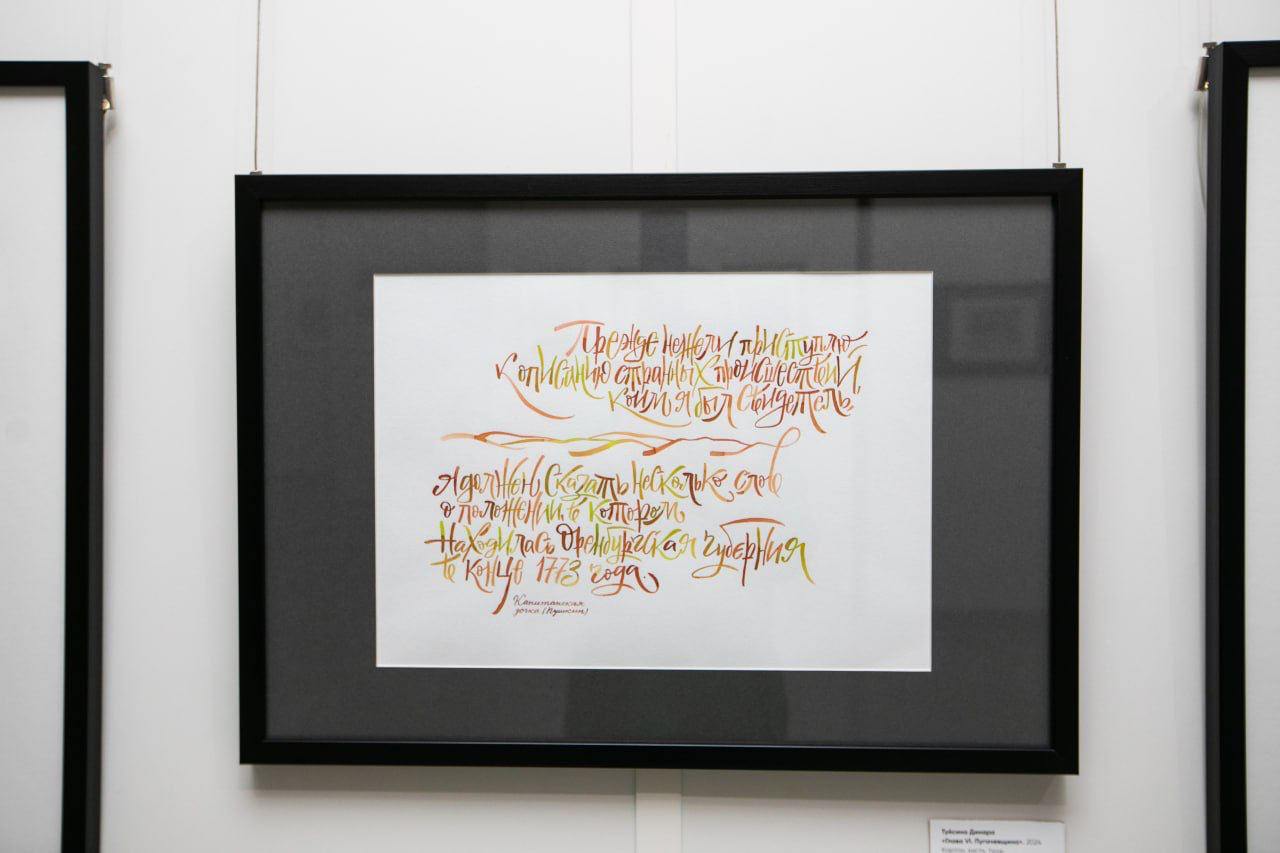 Прежде нежели приступлю
к описанию странных происшествий,
коим я был свидетель,
я должен сказать несколько слов
о положении, в котором
находилась Оренбургская губерния
в конце 1773 года.
Капитанская
дочка (Пушкин)
Туйсина Динара
«Глава VI. Пугачевщина». 2024